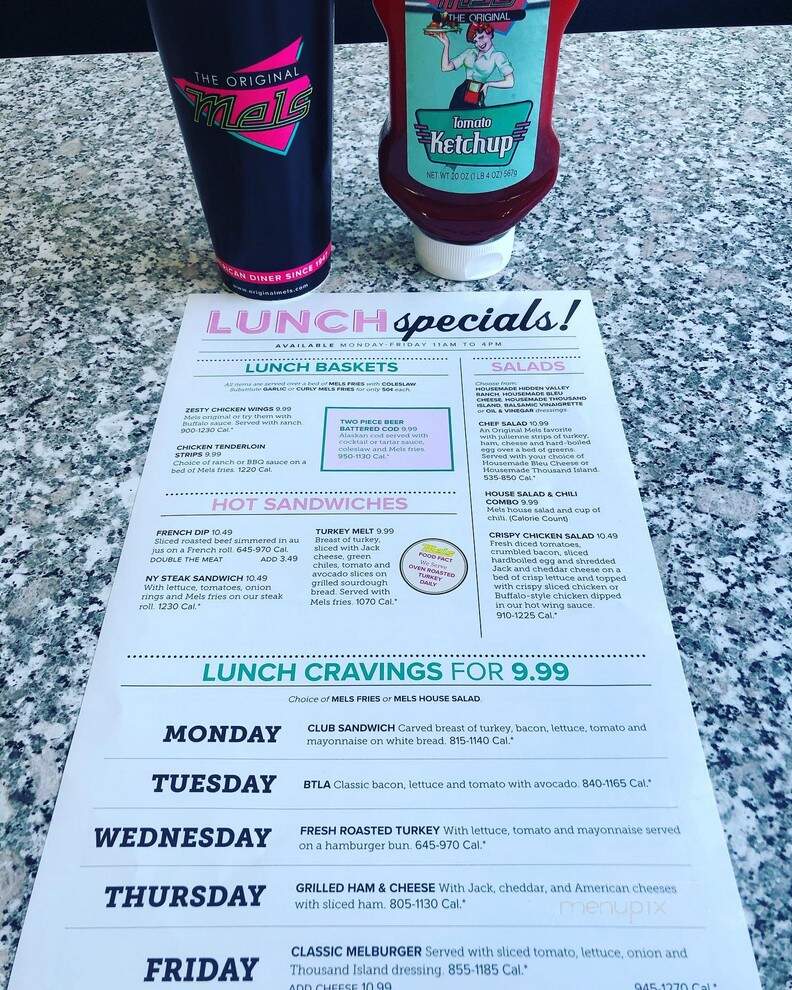 THE ORIGINAL
Mels
CAN DINER SINCE 1947
www.originalmels.com
THE ORIGINAL
Tomato
Ketchup
NET WT 20 OZ (1 LB 4 OZ) 567g
LUNCH specials!
AVAILABLE MONDAY-FRIDAY 11AM TO 4PM
LUNCH BASKETS
All items are served over a bed of MELS FRIES with COLESLAW
Substitute GARLIC or CURLY MELS FRIES for only 50¢ each.
ZESTY CHICKEN WINGS 9.99
Mels original or try them with
Buffalo sauce. Served with ranch.
900-1230 Cal.*
CHICKEN TENDERLOIN
STRIPS 9.99
Choice of ranch or BBQ sauce on a
bed of Mels fries. 1220 Cal.
TWO PIECE BEER
BATTERED COD 9.99
Alaskan cod served with
cocktail or tartar sauce,
coleslaw and Mels fries.
950-1130 Cal.*
HOT SANDWICHES
FRENCH DIP 10.49
Sliced roasted beef simmered in au
jus on a French roll. 645-970 Cal.
DOUBLE THE MEAT ADD 3.49
NY STEAK SANDWICH 10.49
With lettuce, tomatoes, onion
rings and Mels fries on our steak
roll. 1230 Cal.*
TURKEY MELT 9.99
Breast of turkey,
sliced with Jack
cheese, green
chiles, tomato and
avocado slices on
grilled sourdough
bread. Served with
Mels fries. 1070 Cal.*
Mels
FOOD FACT
We Serve
OVEN ROASTED
TURKEY
DAILY
SALADS
Choose from:
HOUSEMADE HIDDEN VALLEY
RANCH, HOUSEMADE BLEU
CHEESE, HOUSEMADE THOUSAND
ISLAND, BALSAMIC VINAIGRETTE
or OIL & VINEGAR dressings.
CHEF SALAD 10.99
An Original Mels favorite
with julienne strips of turkey,
ham, cheese and hard-boiled
egg over a bed of greens.
Served with your choice of
Housemade Bleu Cheese or
Housemade Thousand Island.
535-850 Cal.*
HOUSE SALAD & CHILI
COMBO 9.99
Mels house salad and cup of
chili. (Calorie Count)
CRISPY CHICKEN SALAD 10.49
Fresh diced tomatoes,
crumbled bacon, sliced
hardboiled egg and shredded
Jack and cheddar cheese on a
bed of crisp lettuce and topped
with crispy sliced chicken or
Buffalo-style chicken dipped
in our hot wing sauce.
910-1225 Cal.*
LUNCH CRAVINGS FOR 9.99
Choice of MELS FRIES or MELS HOUSE SALAD.
MONDAY
CLUB SANDWICH Carved breast of turkey, bacon, lettuce, tomato and
mayonnaise on white bread. 815-1140 Cal.*
TUESDAY
BTLA Classic bacon, lettuce and tomato with avocado. 840-1165 Cal.*
WEDNESDAY
FRESH ROASTED TURKEY With lettuce, tomato and mayonnaise served
on a hamburger bun. 645-970 Cal.*
THURSDAY
GRILLED HAM & CHEESE With Jack, cheddar, and American cheeses
with sliced ham. 805-1130 Cal.*
menupix
FRIDAY
CLASSIC MELBURGER Served with sliced tomato, lettuce, onion and
Thousand Island dressing. 855-1185 Cal.*
ADD CHEESE 10.99 945-1270 Cal.*